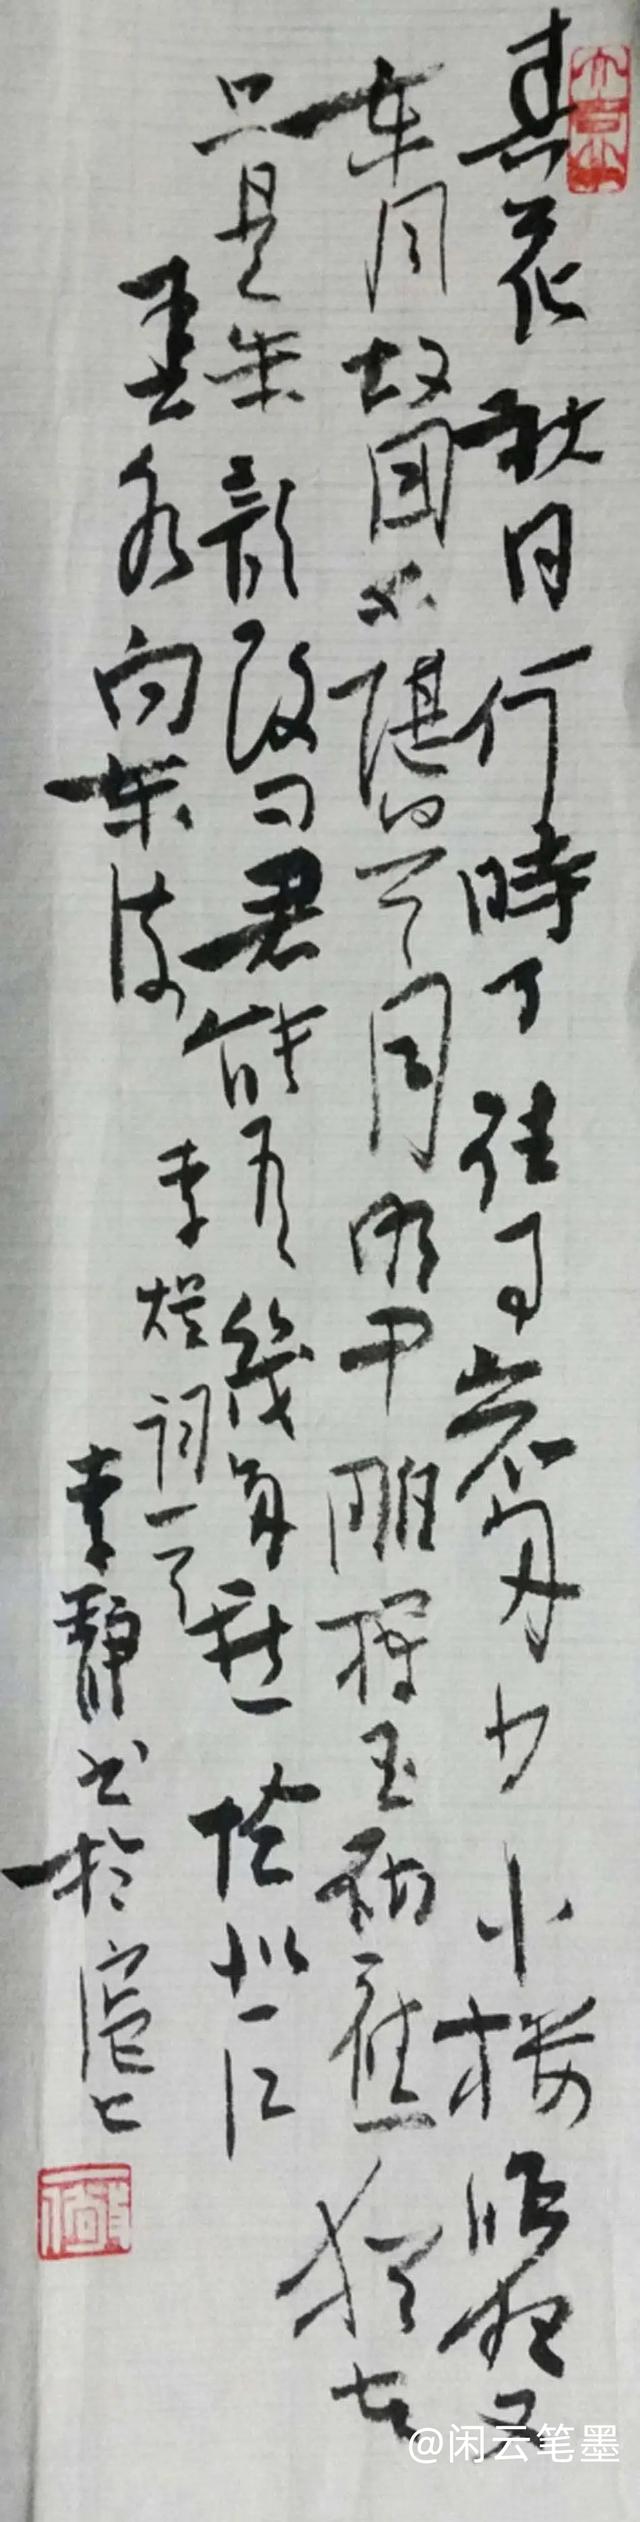 春花秋月何時了往事知多少小樓昨夜又
東風故國不堪回首月明中雕欄玉砌應猶在
只是朱顏改問君能有幾多愁恰似一江
春水向東流
李煜詞一首
李靜書於
@闲云笔墨